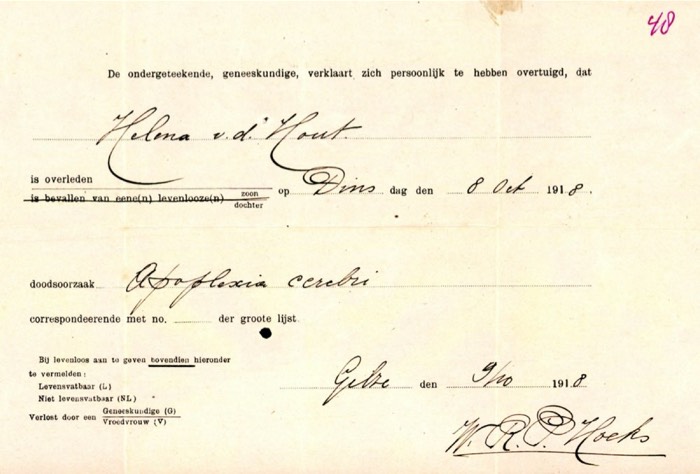 48
De ondergeteekende, geneeskundige, verklaart zich persoonlijk te hebben overtuigd, dat
Helena v.d. Hout.
is overleden
is bevallen van eene(n) levenlooze(n) zoon dochter op Dins dag den 8 Oct 1918.
doodsoorzaak Apoplexia cerebri
correspondeerende met no. der groote lijst
Bij levenloos aan te geven bovendien hieronder
te vermelden:
Levensvatbaar (L)
Niet levensvatbaar (NL)
Verlost door een Geneeskundige (G) Vroedvrouw (V)
Gilze den 9/10 1918
W. R. P. Hoeks